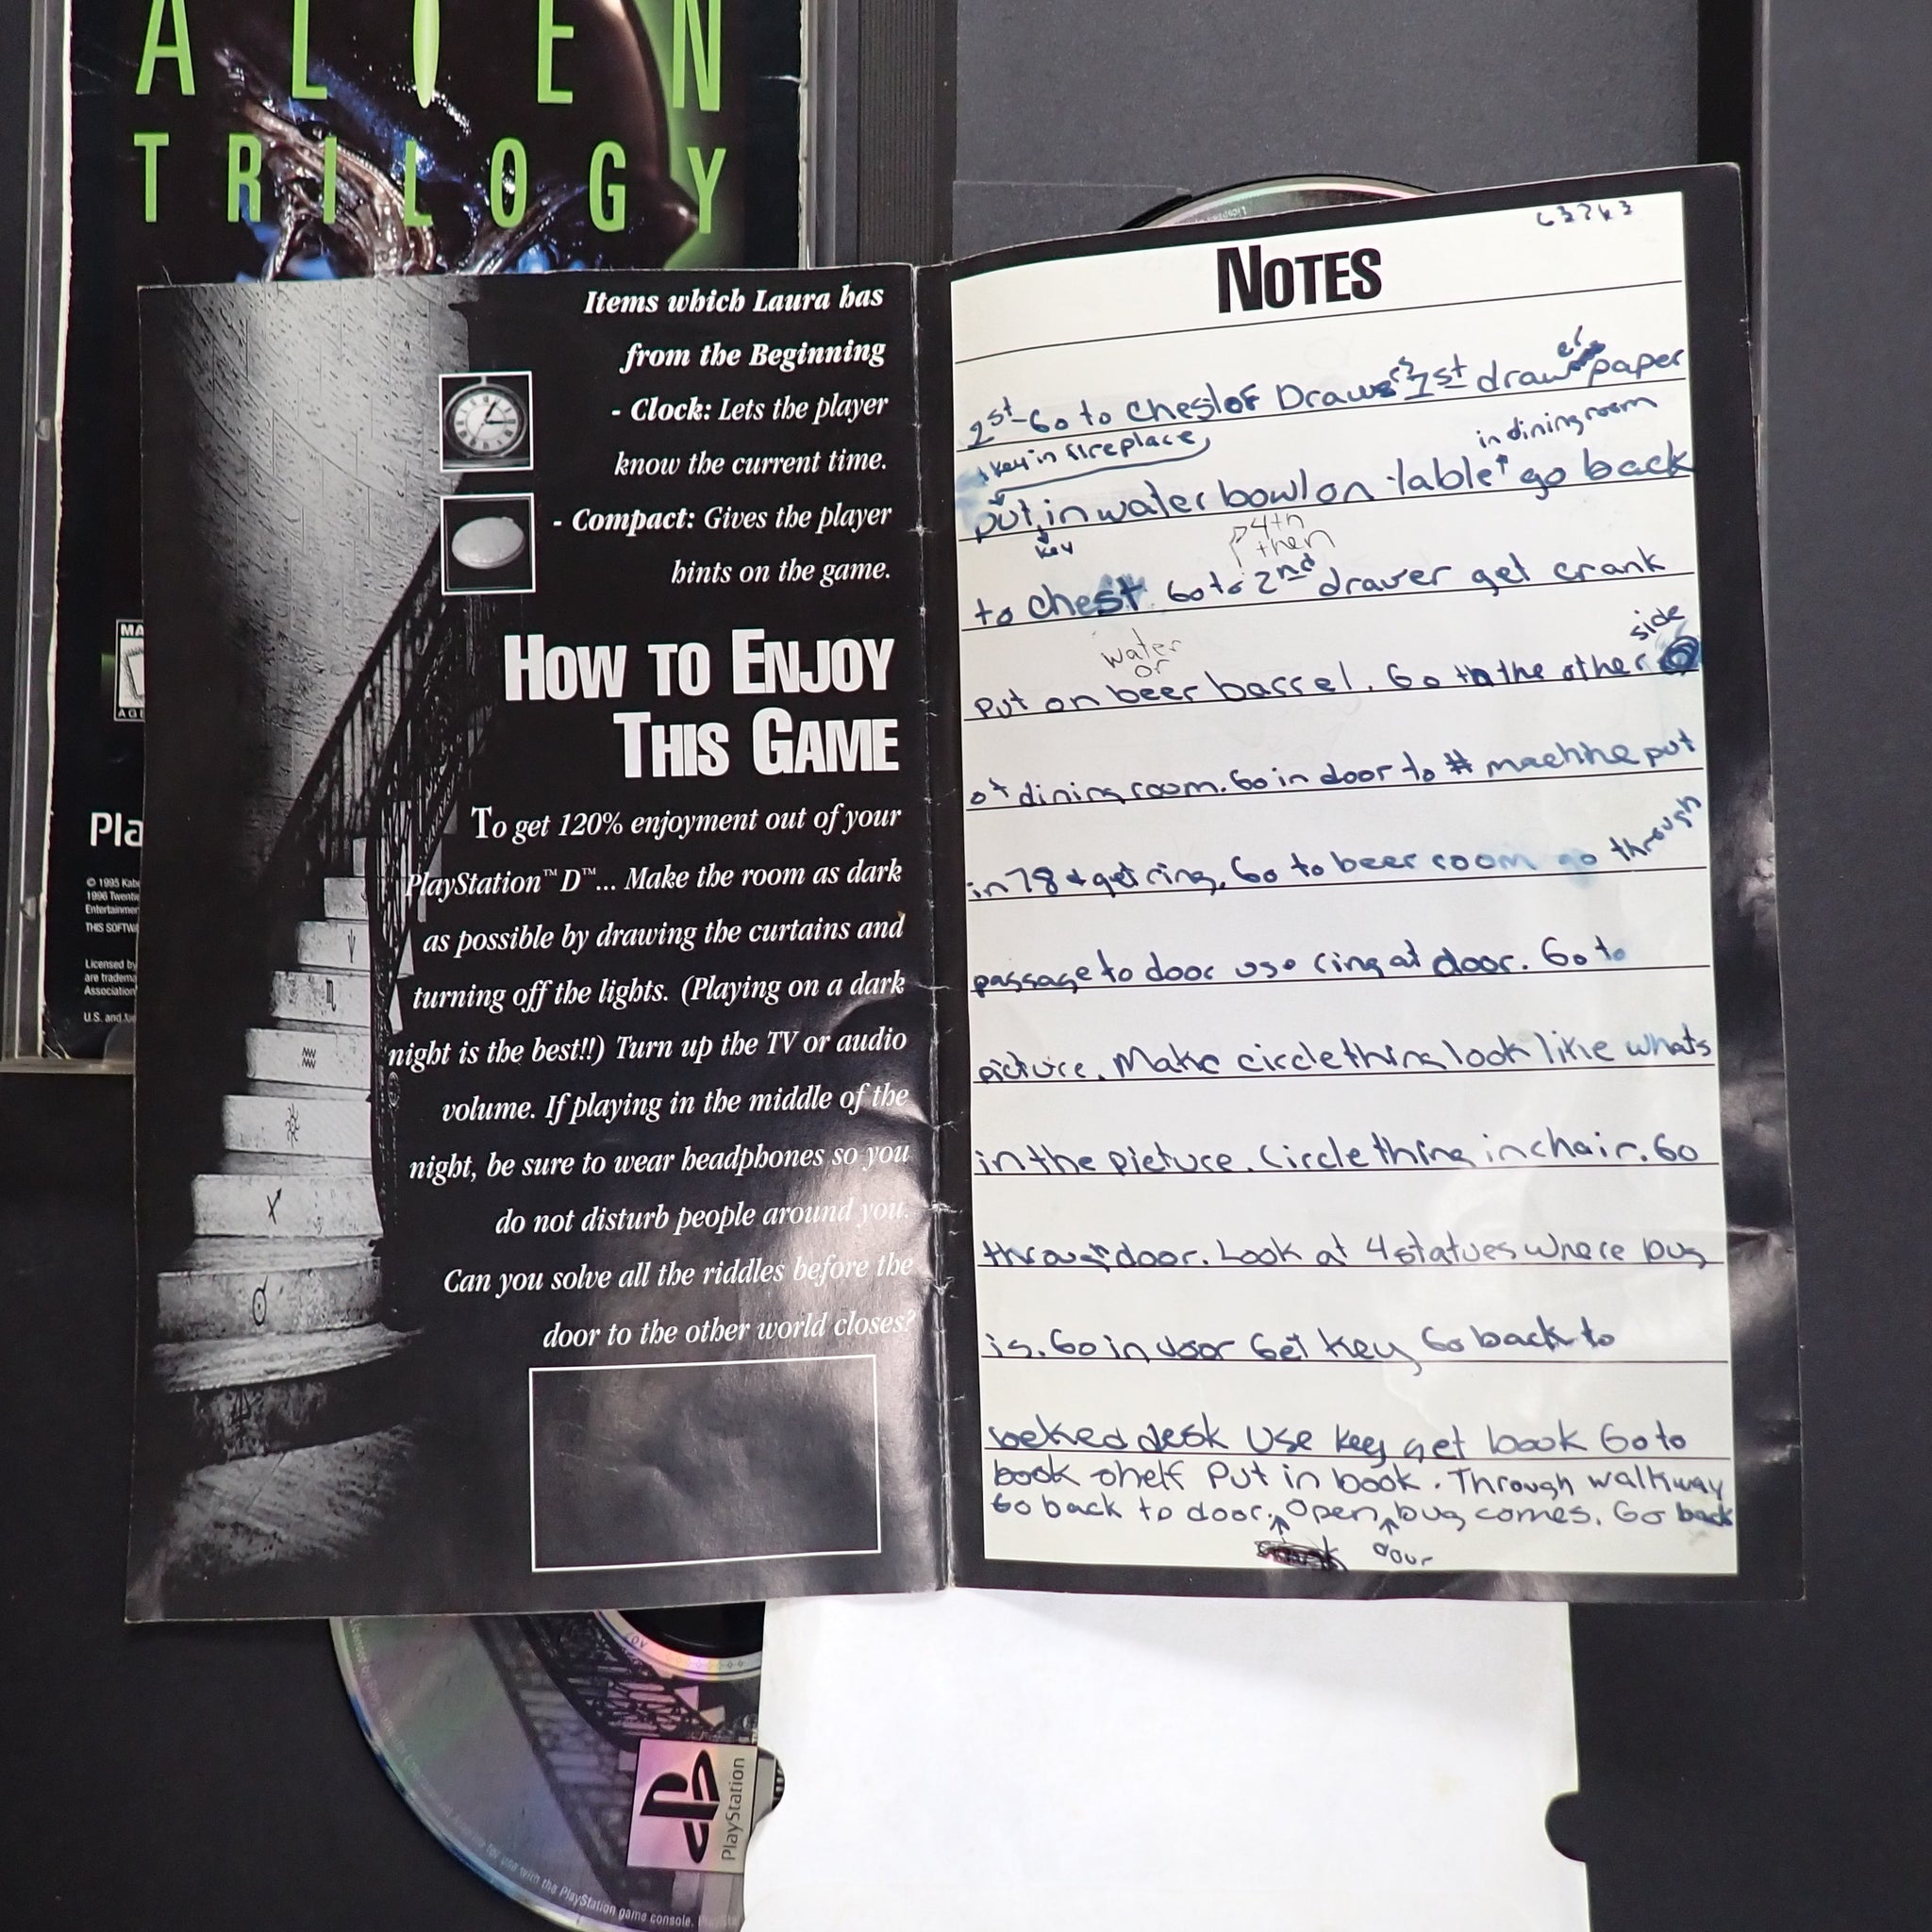 ALIEN
TRILOGY
MA
AG
Pla
© 1995 Kab
1996 Twentie
Entertainmen
THIS SOFTW
Licensed by
are tradema
Association
U.S. and
Items which Laura has
from the Beginning
- Clock: Lets the player
know the current time.
- Compact: Gives the player
hints on the game.
HOW TO ENJOY
THIS GAME
To get 120% enjoyment out of your
PlayStation™ D™... Make the room as dark
as possible by drawing the curtains and
turning off the lights. (Playing on a dark
night is the best!!) Turn up the TV or audio
volume. If playing in the middle of the
night, be sure to wear headphones so you
do not disturb people around you.
Can you solve all the riddles before the
door to the other world closes?
NOTES
Go to Chest of Draws 1st drawer paper
key in fireplace
in dining room
put in water bowl on table go back
key
4th
then
to chest Go to 2nd drawer get crank
water
or
side
Put on beer barrel. Go to the other
of dining room. Go in door to # machine put
in 78 + get ring. Go to beer room go through
passage to door use ring at door. Go to
picture. Make circle thing look like whats
in the picture. Circle thing in chair. Go
through door. Look at 4 statues where bug
is. Go in door Get key Go back to
locked desk Use key get book Go to
book shelf Put in book. Through walkway
Go back to door. Open bug comes. Go back
door
PlayStation
for use with the PlayStation game console.